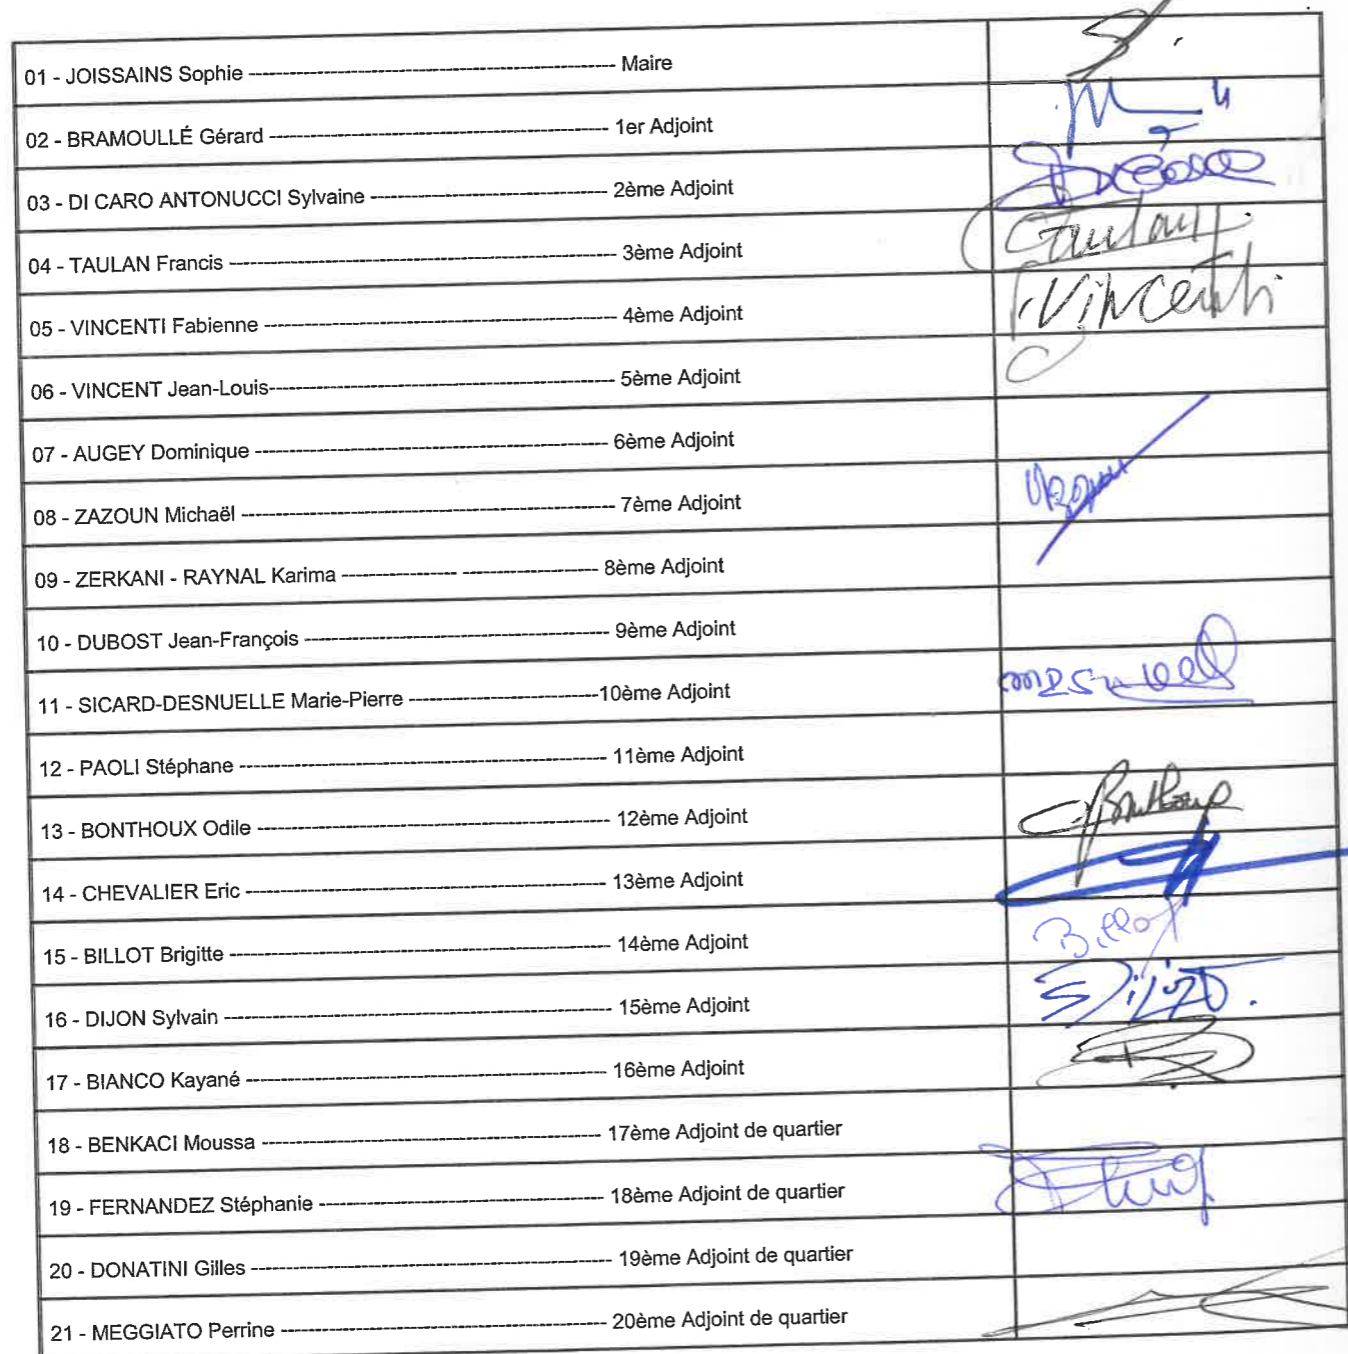 01 - JOISSAINS Sophie ---------------------------------------------------- Maire
02 - BRAMOULLÉ Gérard ------------------------------------------------ 1er Adjoint
03 - DI CARO ANTONUCCI Sylvaine ---------------------------------- 2ème Adjoint
04 - TAULAN Francis ------------------------------------------------------- 3ème Adjoint
Taulan
05 - VINCENTI Fabienne -------------------------------------------------- 4ème Adjoint
Vincenti
06 - VINCENT Jean-Louis------------------------------------------------- 5ème Adjoint
07 - AUGEY Dominique -------------------------------------------------- 6ème Adjoint
08 - ZAZOUN Michaël ----------------------------------------------------- 7ème Adjoint
09 - ZERKANI - RAYNAL Karima ----------------- -------------------- 8ème Adjoint
10 - DUBOST Jean-François -------------------------------------------- 9ème Adjoint
11 - SICARD-DESNUELLE Marie-Pierre ----------------------------10ème Adjoint
12 - PAOLI Stéphane ----------------------------------------------------- 11ème Adjoint
13 - BONTHOUX Odile --------------------------------------------------- 12ème Adjoint
Bonthoux
14 - CHEVALIER Eric ---------------------------------------------------- 13ème Adjoint
15 - BILLOT Brigitte ------------------------------------------------------- 14ème Adjoint
Billot
16 - DIJON Sylvain -------------------------------------------------------- 15ème Adjoint
17 - BIANCO Kayané ---------------------------------------------------- 16ème Adjoint
18 - BENKACI Moussa ------------------------------------------------- 17ème Adjoint de quartier
19 - FERNANDEZ Stéphanie ----------------------------------------- 18ème Adjoint de quartier
20 - DONATINI Gilles ---------------------------------------------------- 19ème Adjoint de quartier
21 - MEGGIATO Perrine ----------------------------------------------- 20ème Adjoint de quartier